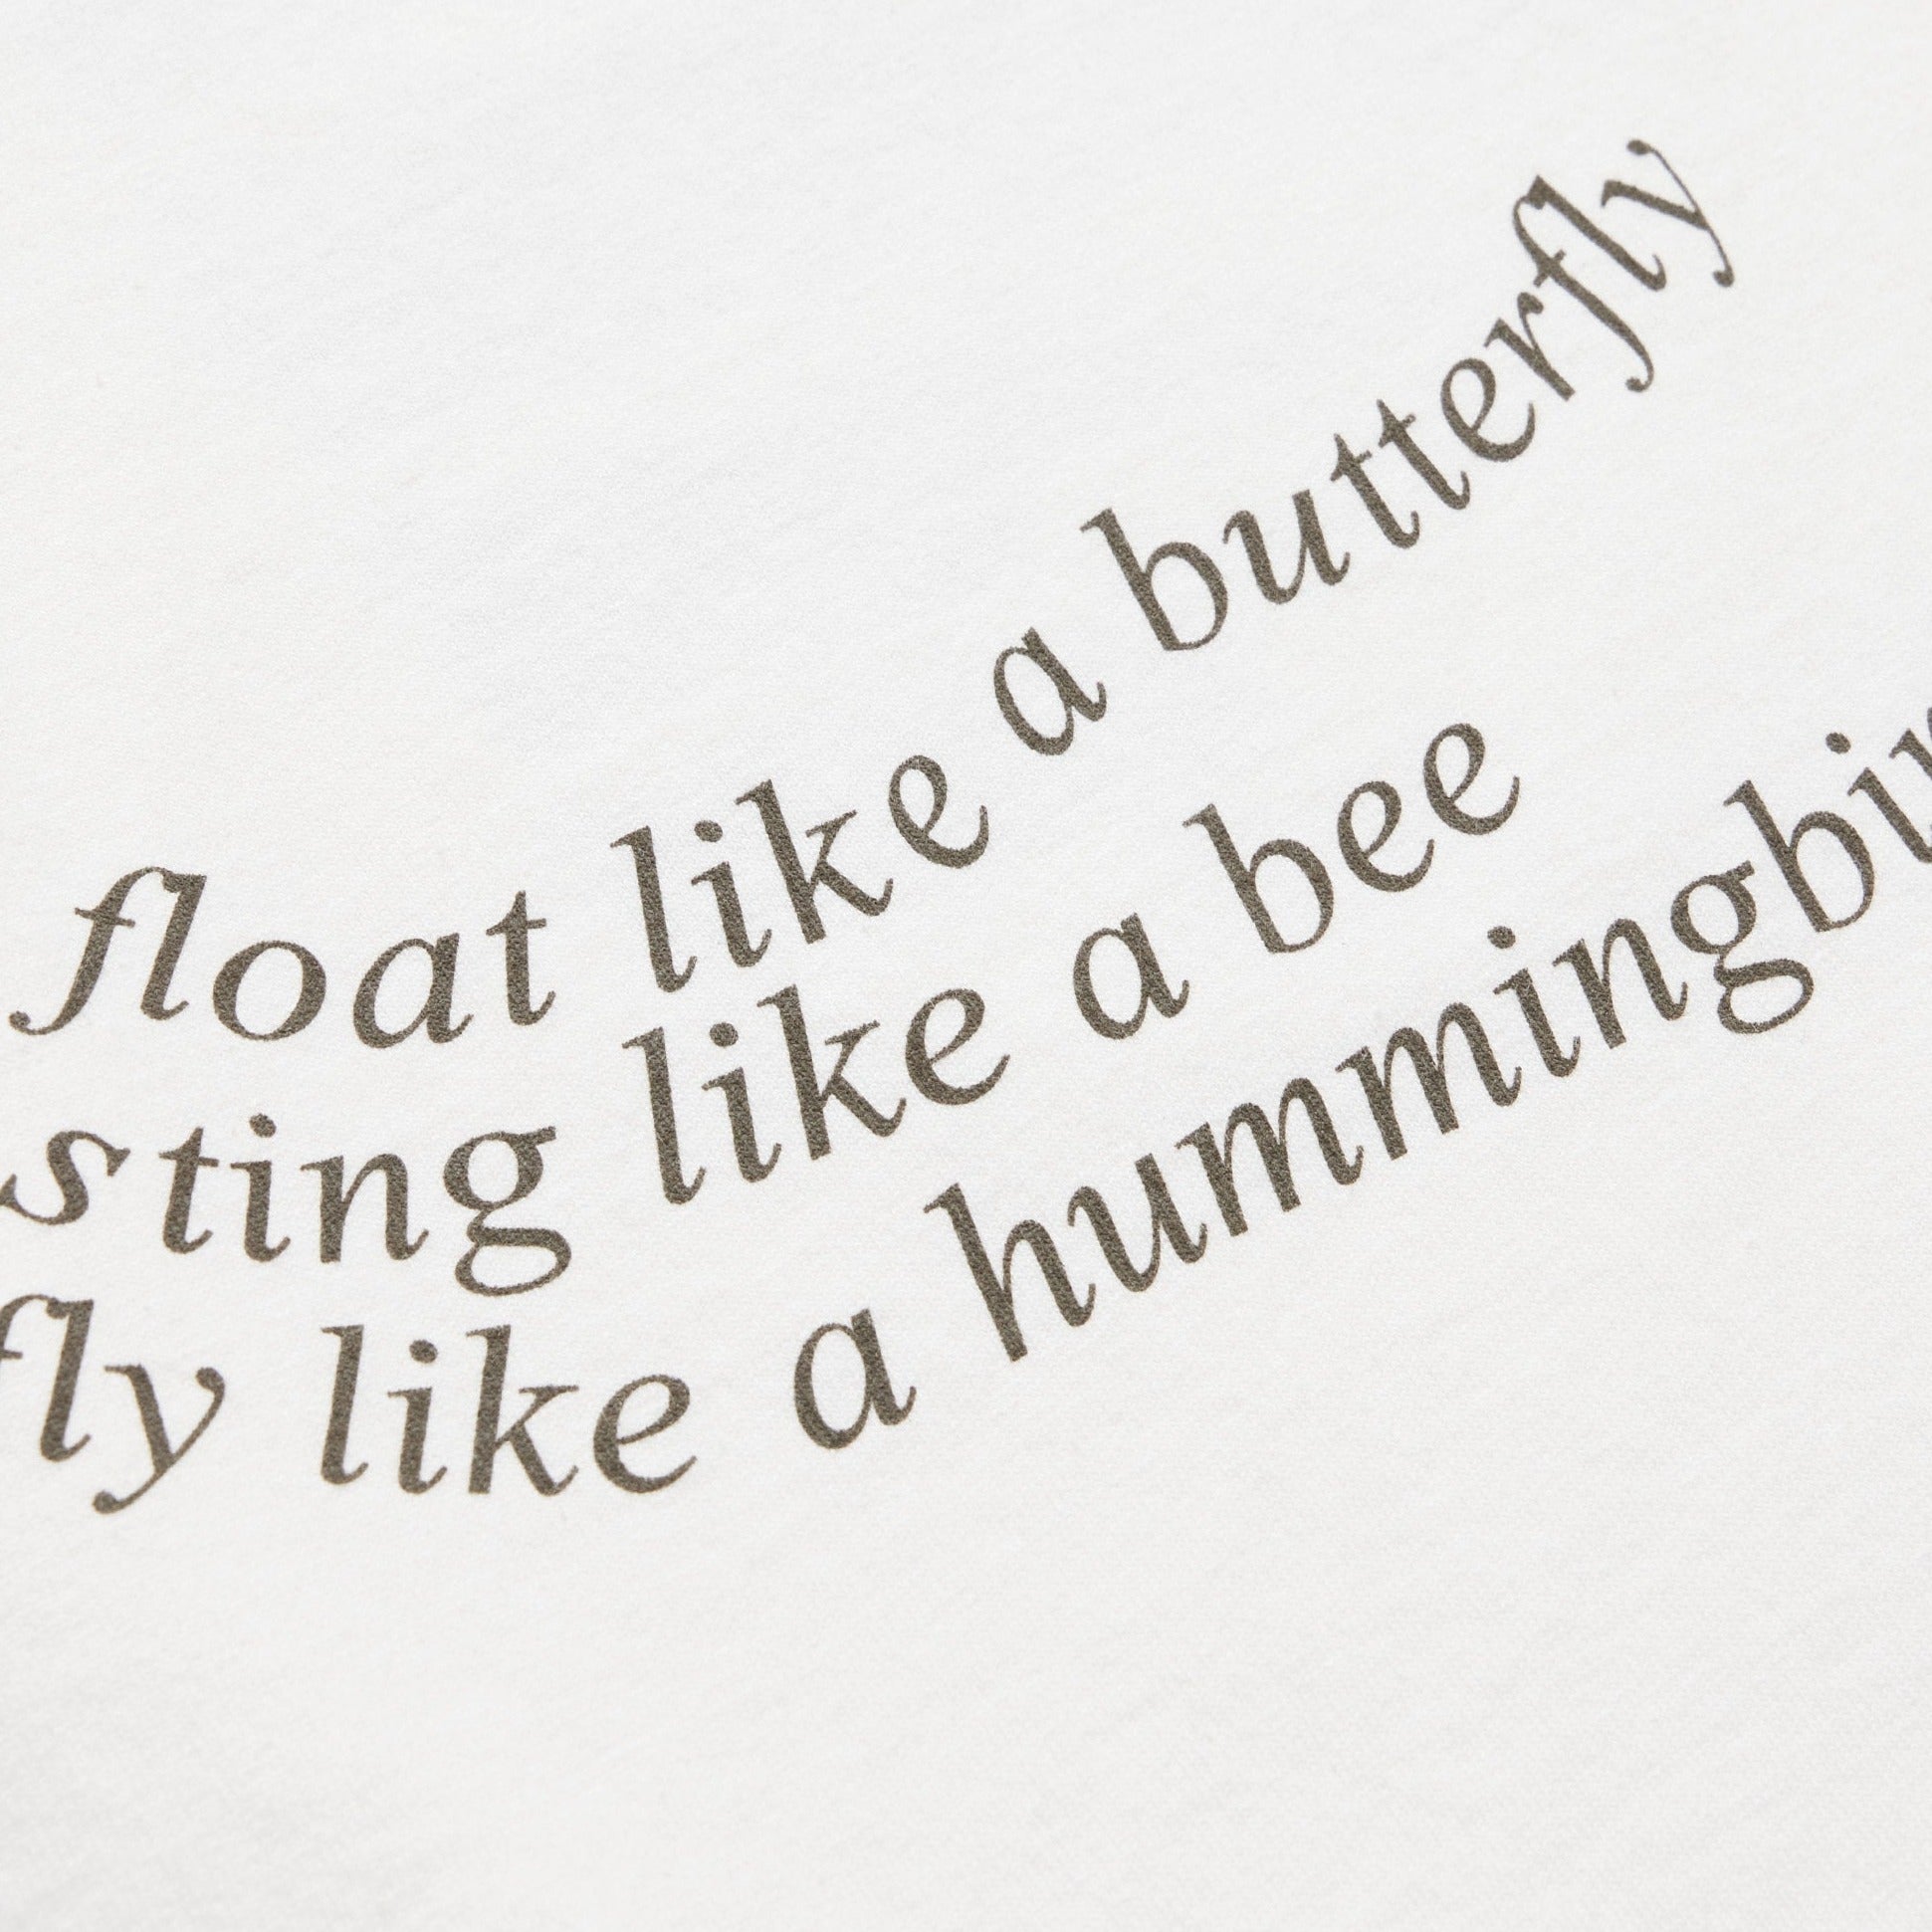 float like a butterfly
sting like a bee
fly like a hummingbir